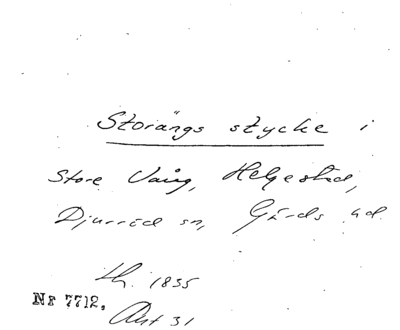 Storängs stycke i
Store Vång, Helgestad,
Djurröd sn, Gärds hd
lh. 1835
Nr 7712. Akt 31